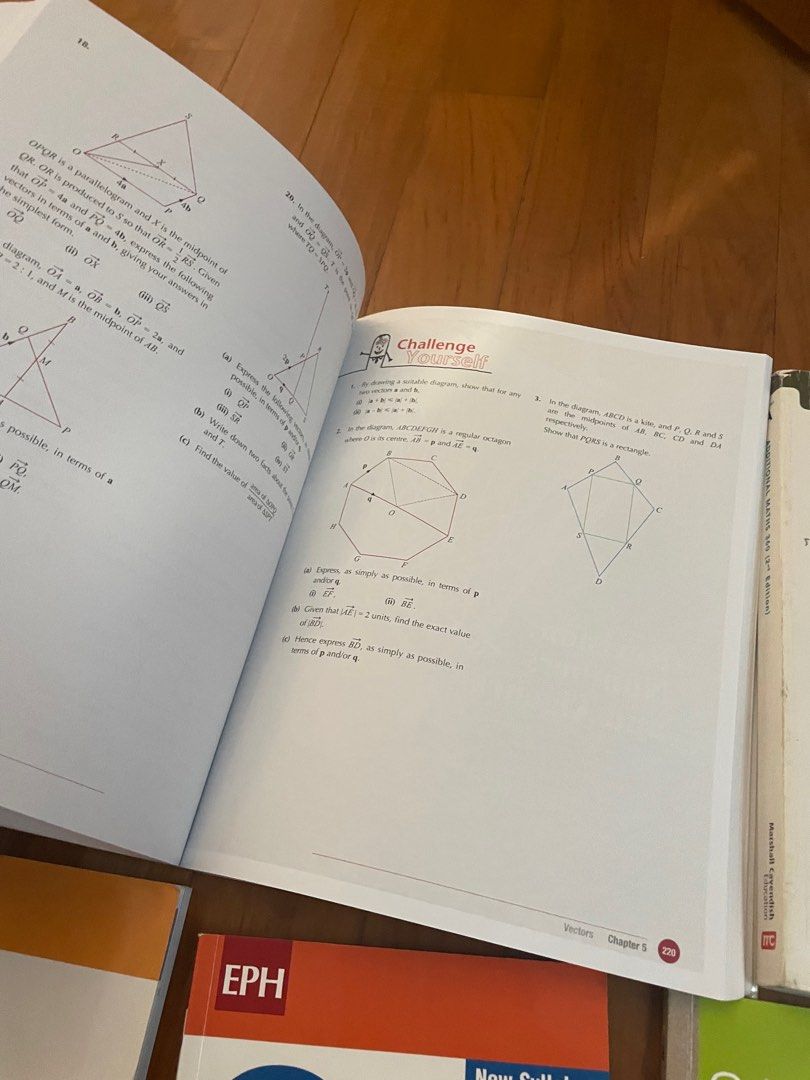 18.
S
R
O
X
4a
P
4b
Q
OPQR is a parallelogram and X is the midpoint of
QR. OR is produced to S so that OR = 1/2 RS. Given
that OP = 4a and PQ = 4b, express the following
vectors in terms of a and b, giving your answers in
the simplest form.
OQ
(ii) OX
(iii) QS
diagram, OA = a, OB = b, OP = 2a, and
= 2 : 1, and M is the midpoint of AB.
b
Q
B
M
P
s possible, in terms of a
PQ,
QM.
20. In the diagram,
T
(a) Express the following
possible, in terms of p
(i) QP
(iii) SR
(b) Write down two facts about
and T.
(c) Find the value of area of
area of
Challenge
Yourself
1. By drawing a suitable diagram, show that for any
two vectors a and b,
(i) |a + b| ⩽ |a| + |b|,
(ii) |a − b| ⩽ |a| + |b|.
2. In the diagram, ABCDEFGH is a regular octagon
where O is its centre. AB = p and AE = q.
B
C
p
A
q
D
O
H
E
G
F
(a) Express, as simply as possible, in terms of p
and/or q.
(i) EF,
(ii) BE.
(b) Given that |AE| = 2 units, find the exact value
of |BD|.
(c) Hence express BD, as simply as possible, in
terms of p and/or q.
3. In the diagram, ABCD is a kite, and P, Q, R and S
are the midpoints of AB, BC, CD and DA
respectively.
Show that PQRS is a rectangle.
B
P
Q
A
C
S
R
D
Vectors Chapter 5 220
ADDITIONAL MATHS 360 (2nd Edition)
Marshall Cavendish
Education
EPH